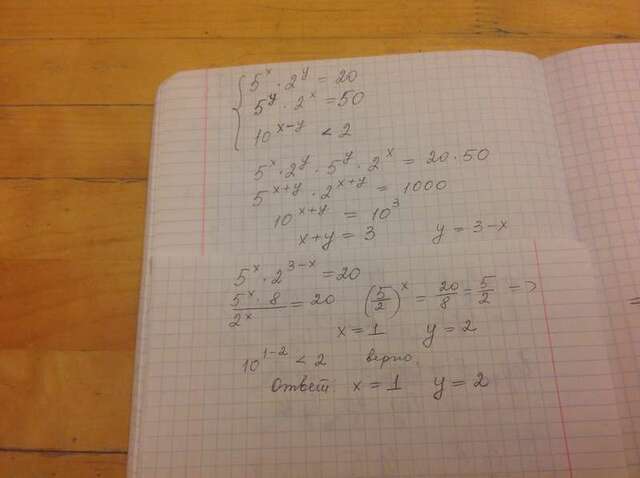 5^x · 2^y = 20
5^y · 2^x = 50
10^{x-y} < 2
5^x · 2^y · 5^y · 2^x = 20·50
5^{x+y} · 2^{x+y} = 1000
10^{x+y} = 10^3
x+y = 3 y = 3-x
5^x · 2^{3-x} = 20
5^x · 8 / 2^x = 20 (5/2)^x = 20/8 = 5/2 =>
x = 1 y = 2
10^{1-2} < 2 верно.
Ответ x = 1 y = 2